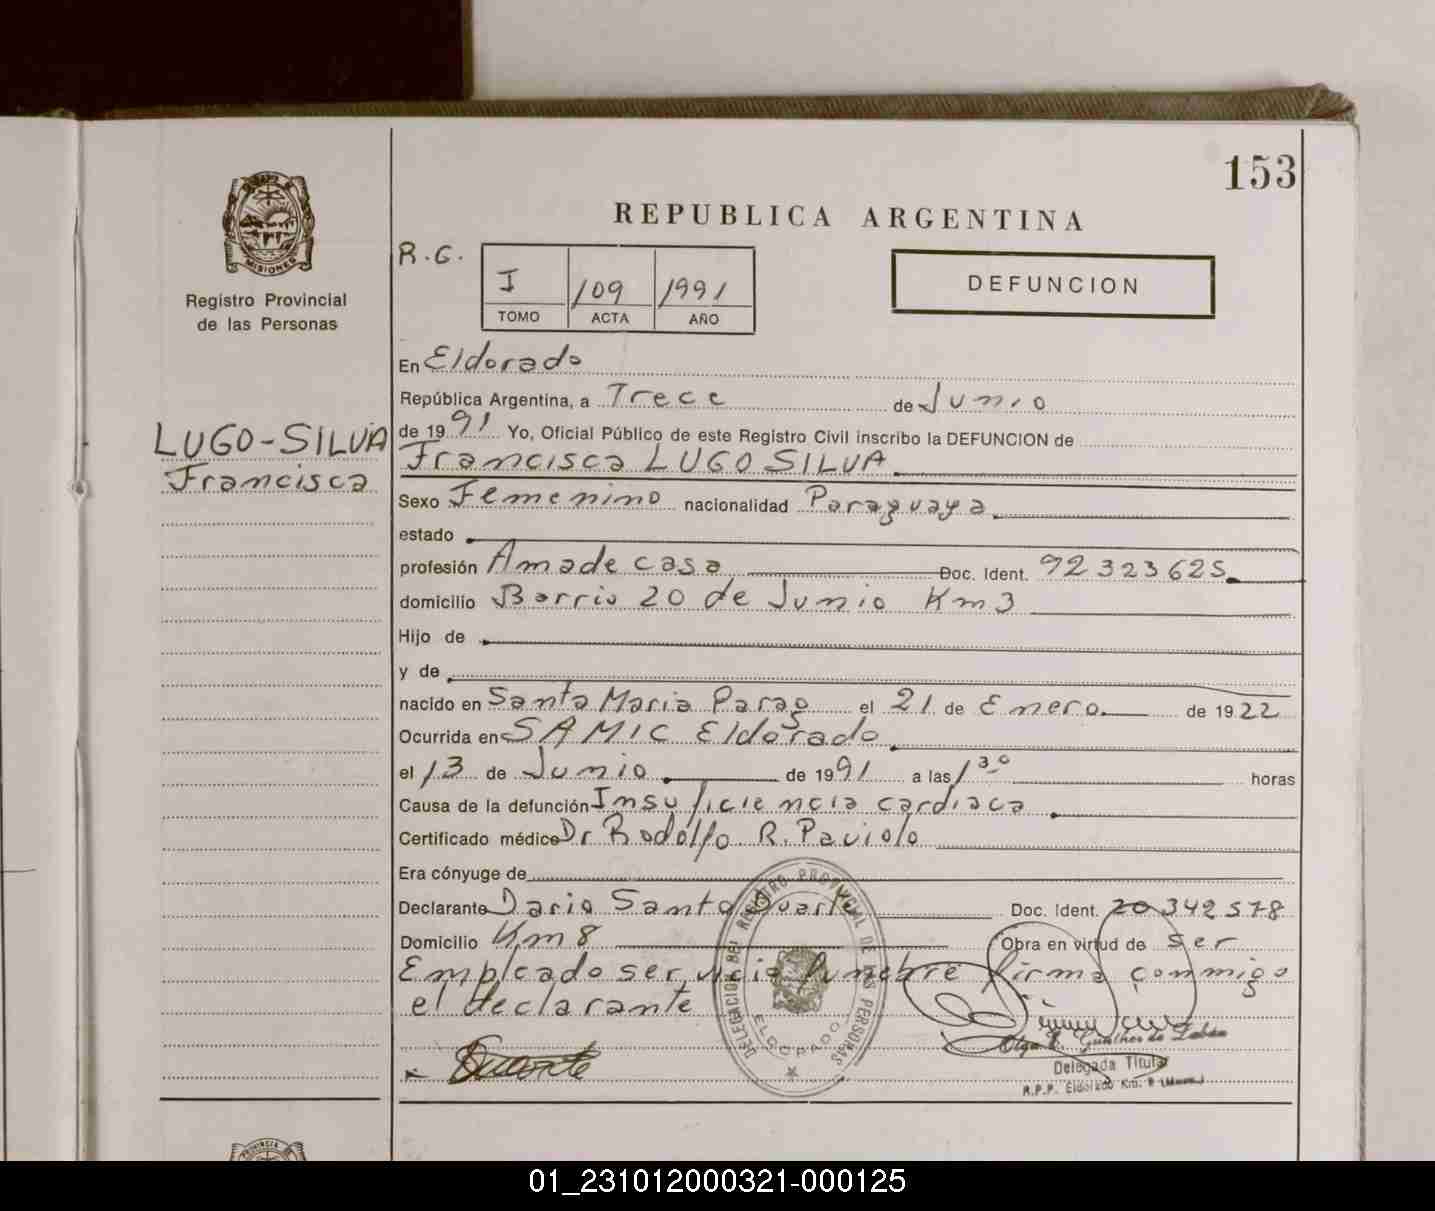 153
REPUBLICA ARGENTINA
MISIONES
Registro Provincial
de las Personas
R.G.
I 109 1991
TOMO ACTA AÑO
DEFUNCION
LUGO-SILVA
Francisca
En Eldorado
República Argentina, a Trece de Junio
de 1991 Yo, Oficial Público de este Registro Civil inscribo la DEFUNCION de
Francisca LUGO SILVA
Sexo Femenino nacionalidad Paraguaya
estado
profesión Ama de casa Doc. Ident. 92323625
domicilio Barrio 20 de Junio Km 3
Hijo de
y de
nacido en Santa Maria Parag el 21 de Enero de 1922
Ocurrida en SAMIC Eldorado
el 13 de Junio de 1991 a las 1 30 horas
Causa de la defunción Insuficiencia cardiaca
Certificado médico Dr Rodolfo R. Paviolo
Era cónyuge de
Declarante Dario Santo Duarte Doc. Ident. 20342578
Domicilio Km 8 Obra en virtud de ser
Empleado servicio funebre firma conmigo
el declarante
DELEGACION DEL REGISTRO PROVINCIAL DE LAS PERSONAS
ELDORADO
Duarte
Olga
Delegada Titular
R.P.P. Eldorado Km.
PROVINCIA DE
01_231012000321-000125